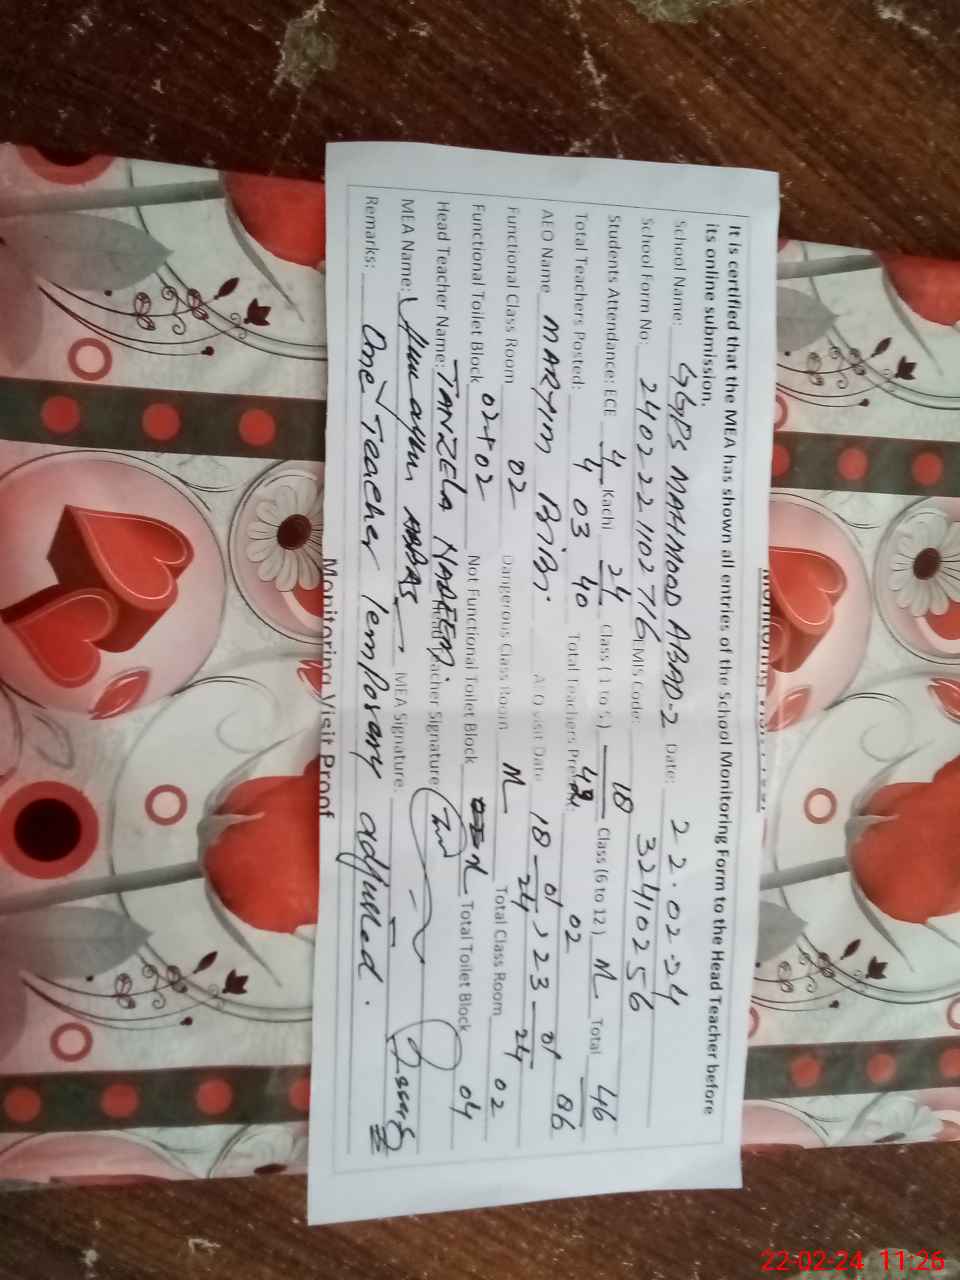 It is certified that the MEA has shown all entries of the School Monitoring Form to the Head Teacher before
its online submission.
School Name: GGPS MAHMOOD ABAD-2 Date: 22.02.24
School Form No: 2402221102716 EMIS Code: 32410256
Students Attendance: ECE 4 Kachi 24 Class (1 to 5) 18 Class (6 to 12) N Total 46
4 40 49 86
Total Teachers Posted: 03 Total Teachers Present: 02
AEO Name MARYIM BiBi. AEO visit Date 18-01-24, 23-01-24
Functional Class Room 02 Dangerous Class Room N Total Class Room 02
Functional Toilet Block 02+02 Not Functional Toilet Block N Total Toilet Block 04
Head Teacher Name: TANZELA NADEEM Head Teacher Signature:
MEA Name: ABBAS MEA Signature:
Remarks: One Teacher Temporary adjusted.
Monitoring Visit Proof
22-02-24 11:26